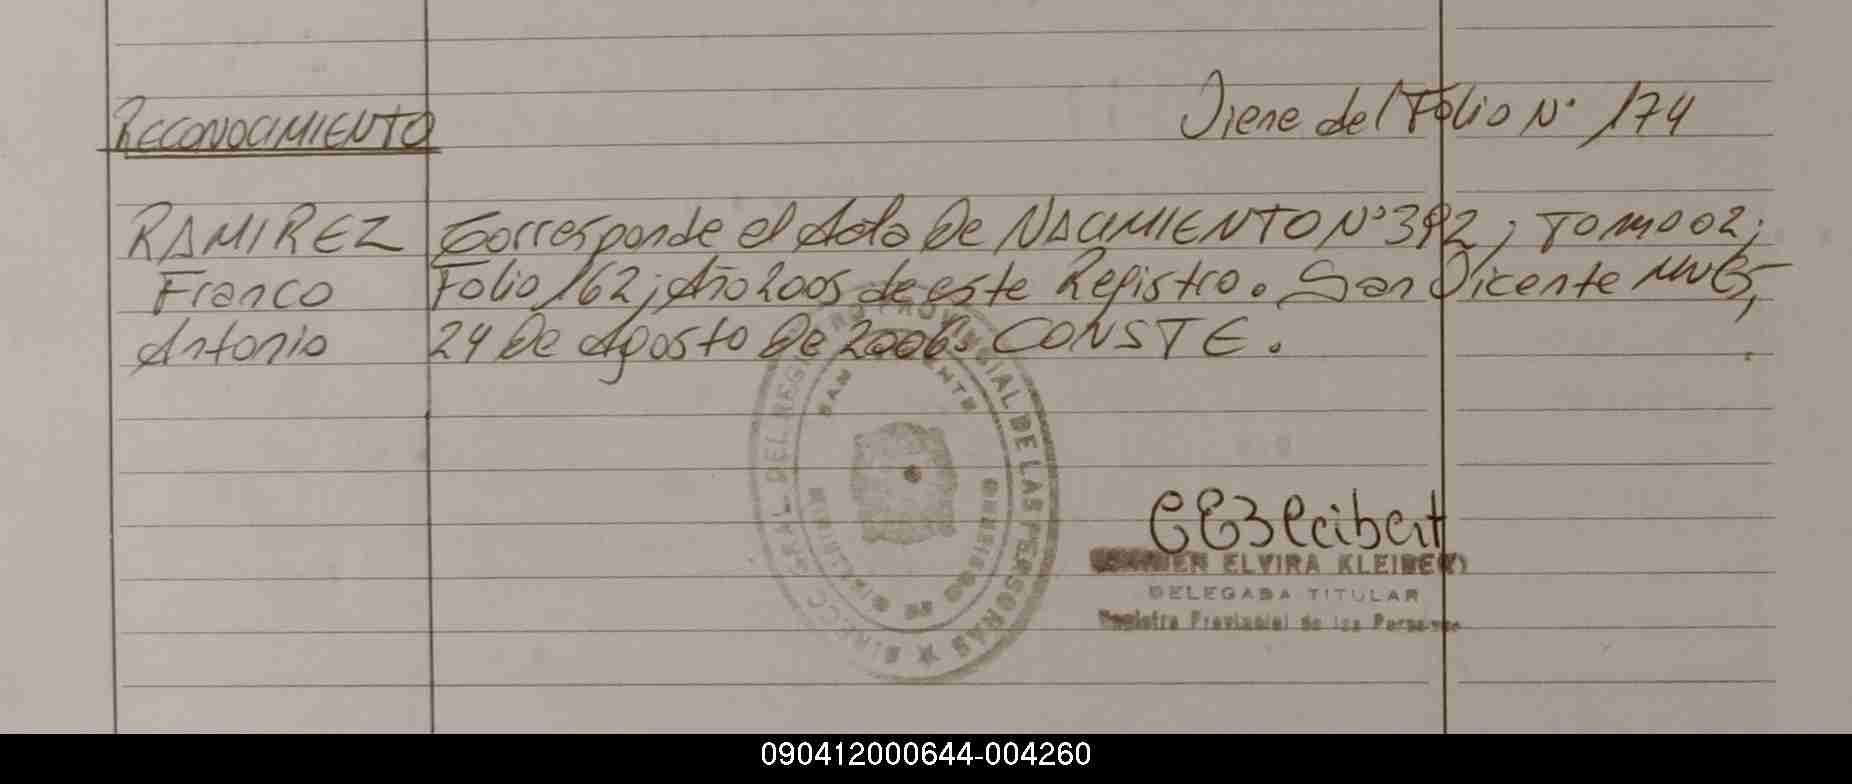 RECONOCIMIENTO
Viene del Folio N° 174
RAMIREZ Corresponde el Acta De NACIMIENTO N°392; TOMO 02;
Franco Folio 162; Año 2005 de este Registro. San Vicente MNES,
Antonio 24 De Agosto De 2006. CONSTE.
DIRECC GRAL. DEL REGISTRO PROVINCIAL DE LAS PERSONAS
SAN VICENTE
CEB Kleibert
ELVIRA KLEIBERT
DELEGADA TITULAR
Registro Provincial de las Personas
090412000644-004260